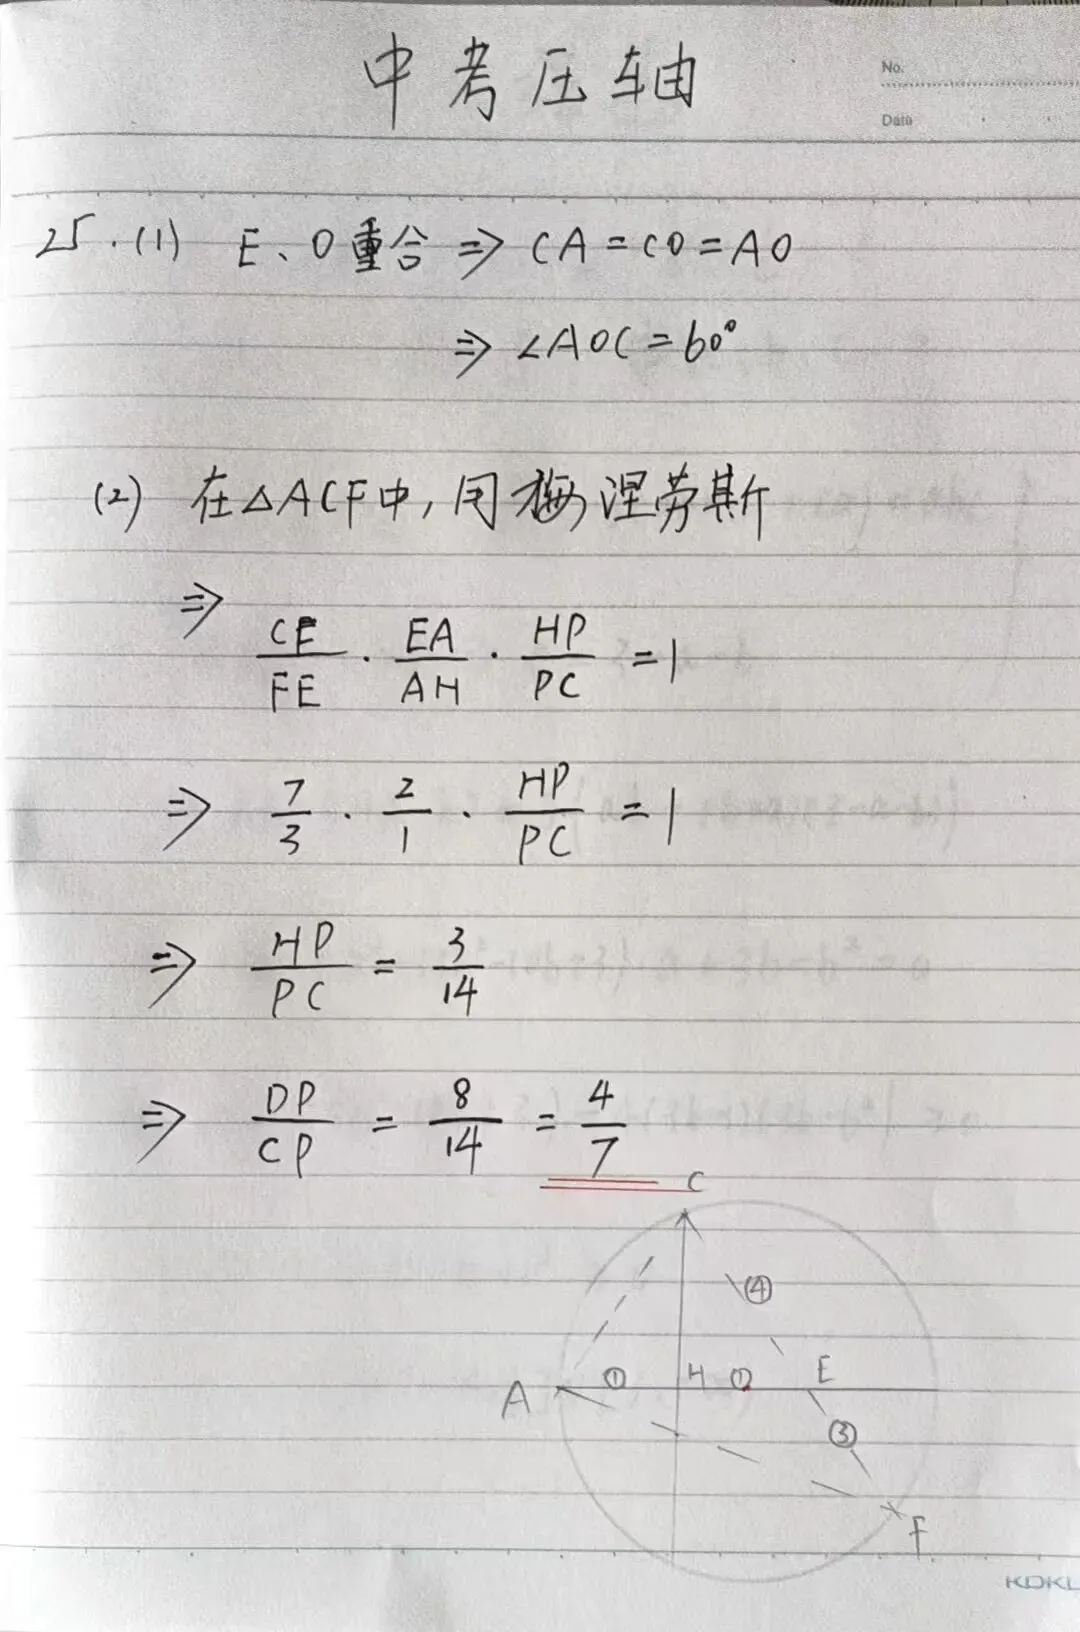 中考压轴
No.
Date
25.(1) E、O重合 ⇒ CA=CO=AO
⇒ ∠AOC=60°
(2) 在△ACF中,用梅涅劳斯
⇒ CF/FE · EA/AH · HP/PC = 1
⇒ 7/3 · 2/1 · HP/PC = 1
⇒ HP/PC = 3/14
⇒ DP/CP = 8/14 = 4/7
C
④
A ① H ① E
③
F